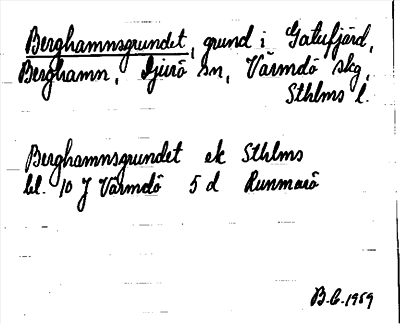 Berghamnsgrundet, grund i Gatufjärd,
Berghamn, Djurö sn, Värmdö skg,
Sthlms l.
Berghamnsgrundet ek Sthlms
bl. 10 J Värmdö 5 d Runmarö
B.G. 1959